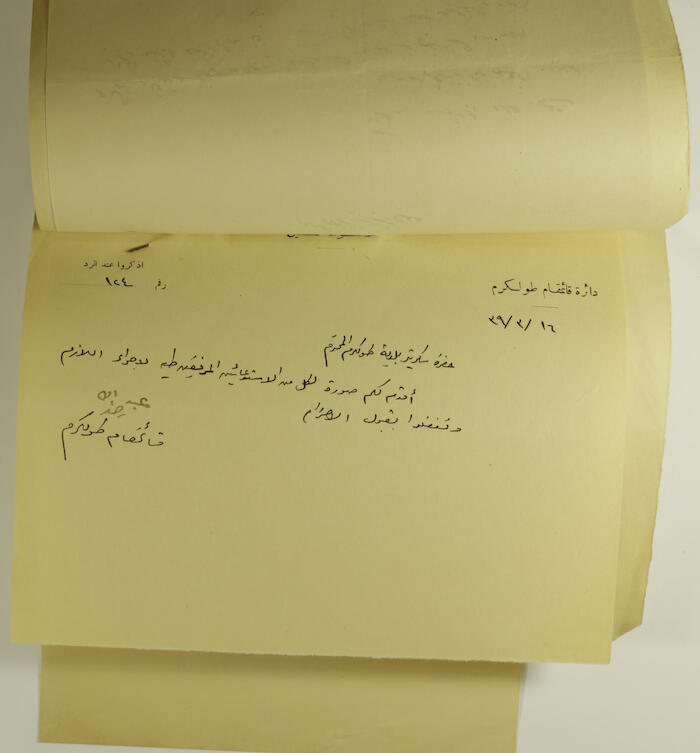 دائرة قائمقام طولكرم
١٦/٣/٣٩
اذكروا عند الرد
رقم ١٢٤
حضرة سكرتير بلدية طولكرم المحترم
أقدم لكم صورة لكل من الاستدعائين المرفقين طيه لاجراء اللازم
وتفضلوا بقبول الاحترام
قائمقام طولكرم